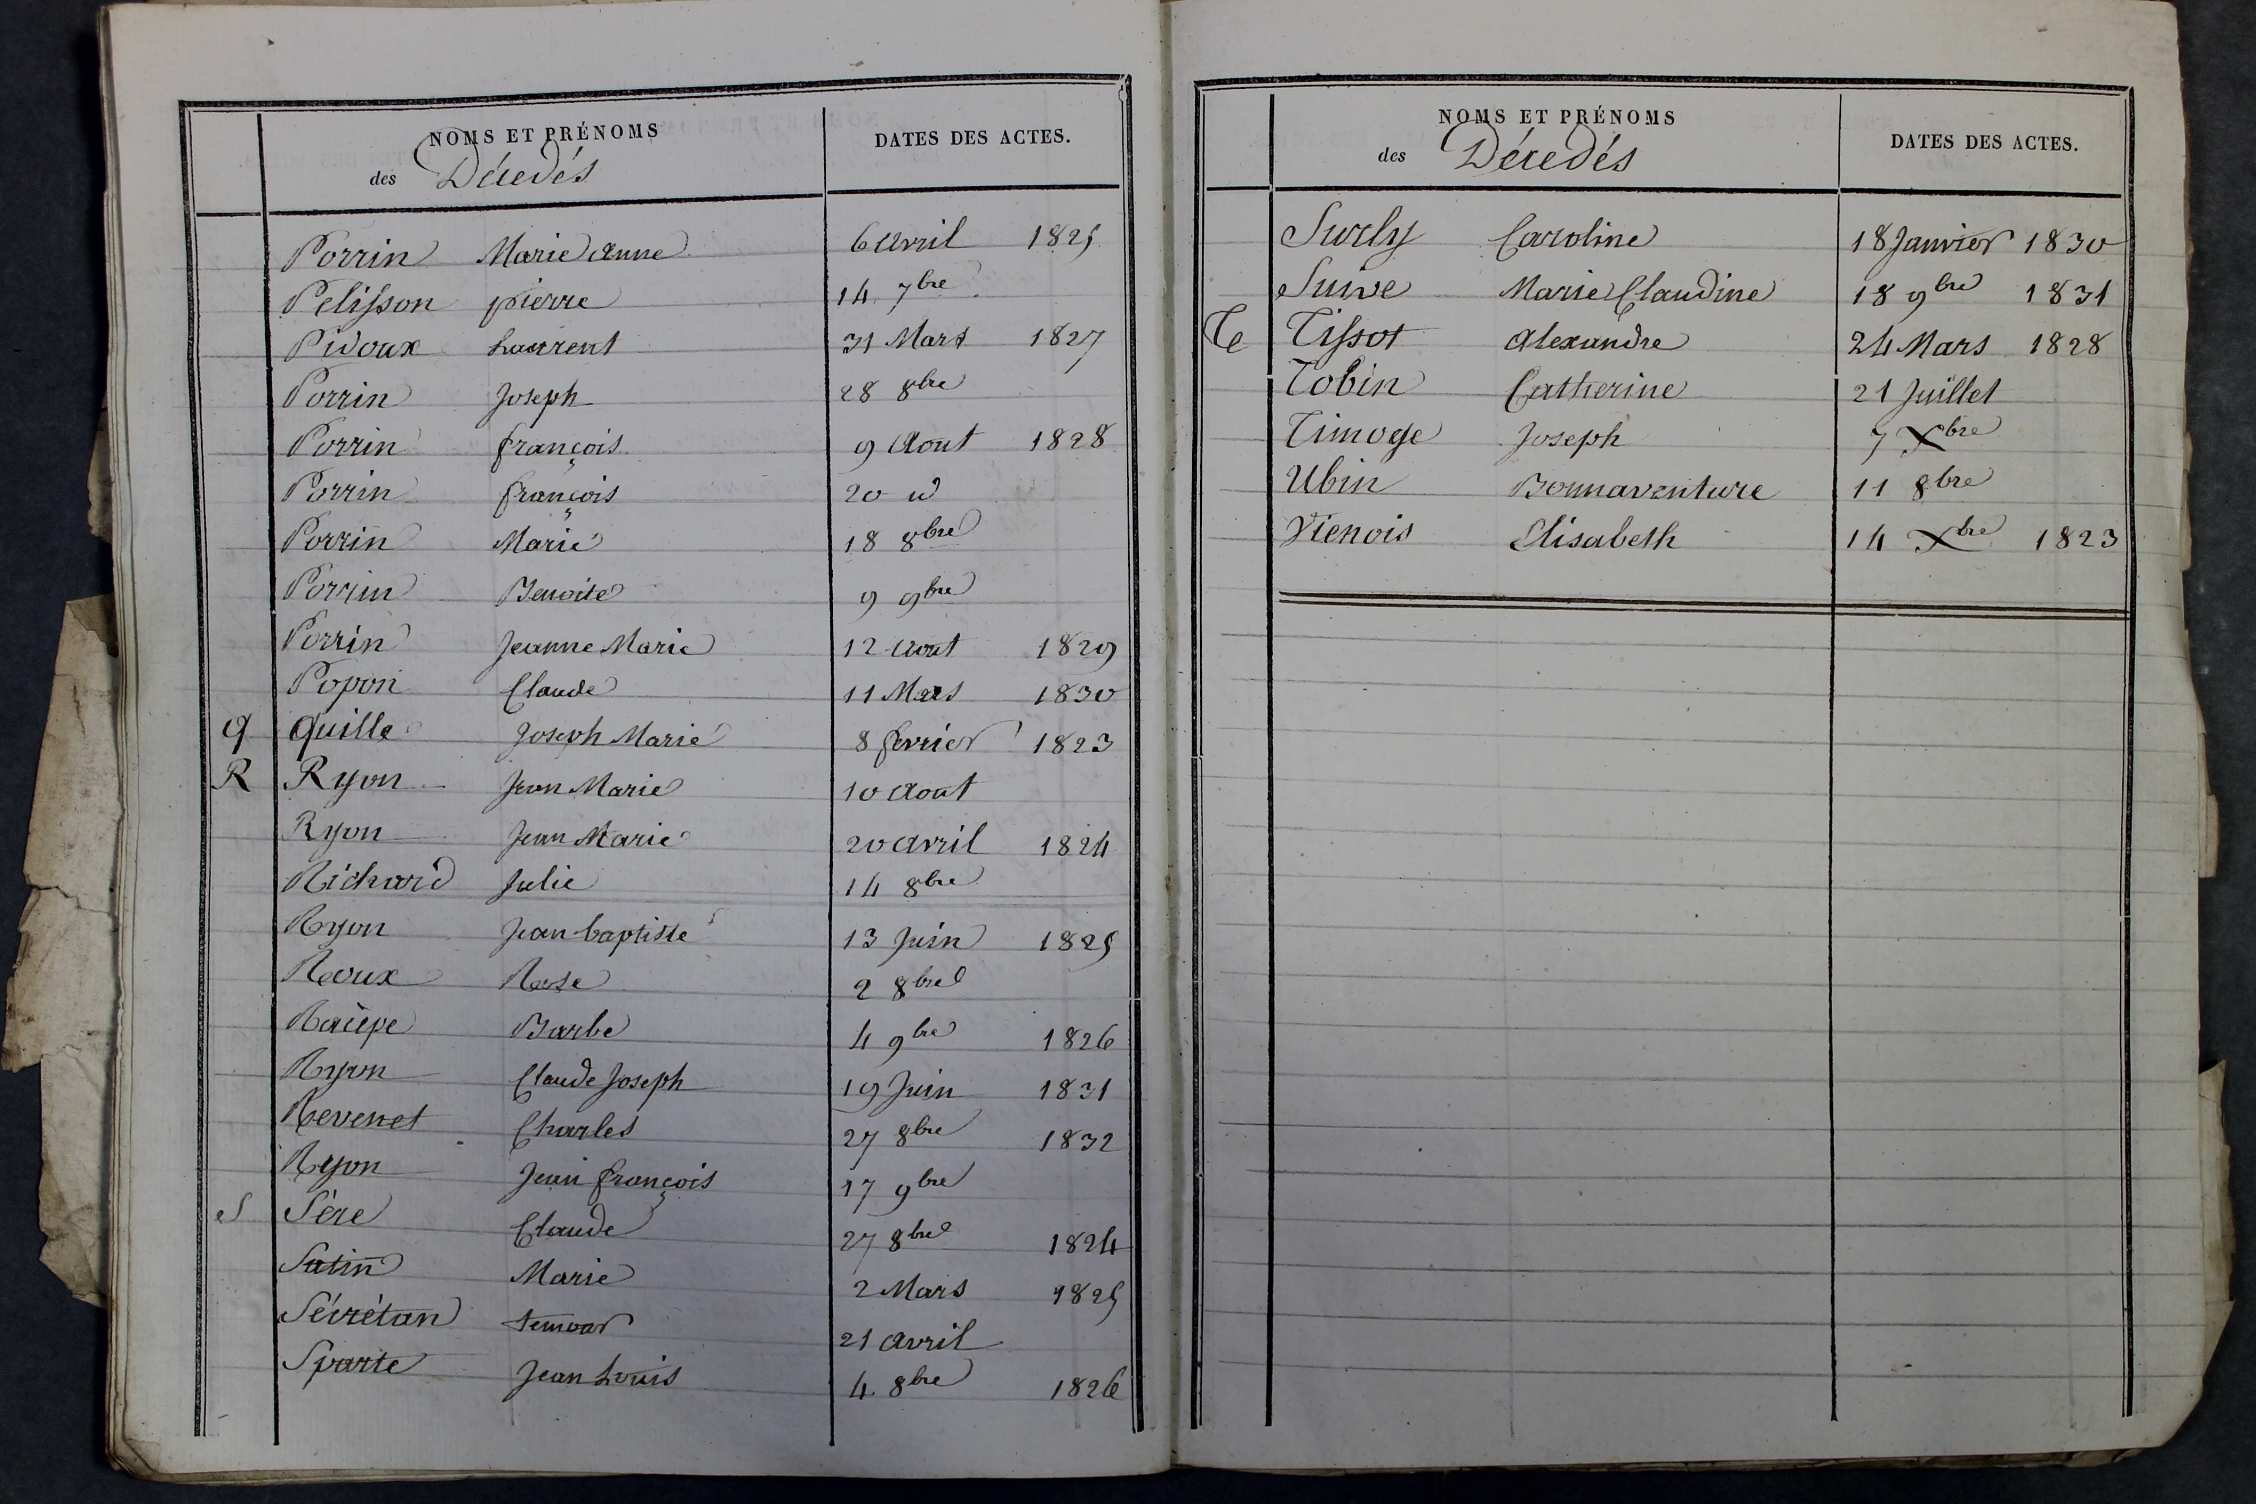 NOMS ET PRÉNOMS
des Décedés
DATES DES ACTES.
Porrin Marie anne 6 avril 1825
Pelisson pierre 14 7bre
Pidoux Laurent 31 Mars 1827
Porrin Joseph 28 8bre
Porrin françois 9 Aout 1828
Porrin françois 20 id
Porrin Marie 18 8bre
Porrin Benoite 9 9bre
Porrin Jeanne Marie 12 Aout 1829
Popon Claude 11 Mars 1830
Q Quille Joseph Marie 8 fevrier 1823
R Ryon Jean Marie 10 Aout
Ryon Jean Marie 20 avril 1824
Richard Julie 14 8bre
Ryon Jean baptiste 13 Juin 1825
Roux Rose 2 8bre
Racèpe Barbe 4 9bre 1826
Ryon Claude Joseph 19 Juin 1831
Revenet Charles 27 8bre 1832
Ryon Jean françois 17 9bre
S Sère Claude 27 8bre 1824
Satin Marie 2 Mars 1825
Sécrétan 21 avril
Sparte Jean Louis 4 8bre 1826
NOMS ET PRÉNOMS
des Décedés
DATES DES ACTES.
Surly Caroline 18 Janvier 1830
Suive Marie Claudine 18 9bre 1831
T Tissot Alexandre 24 Mars 1828
Tobin Catherine 21 Juillet
Timoge Joseph 7 Xbre
Ubin Bonnaventure 11 8bre
Vienois Elisabeth 14 Xbre 1823